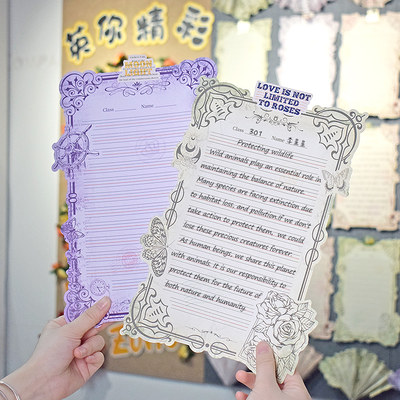 英你精彩
Class
Name
LOVE IS NOT
LIMITED
TO ROSES
Class 307 Name
Protecting wildlife
Wild animals play an essential role in
maintaining the balance of nature.
Many species are facing extinction due
to habitat loss, and pollution.if we don't
take action to protect them, we could
lose these precious creatures forever.
As human beings, we share this planet
with animals. it is our responsibility to
protect them for the future of
both nature and humanity.